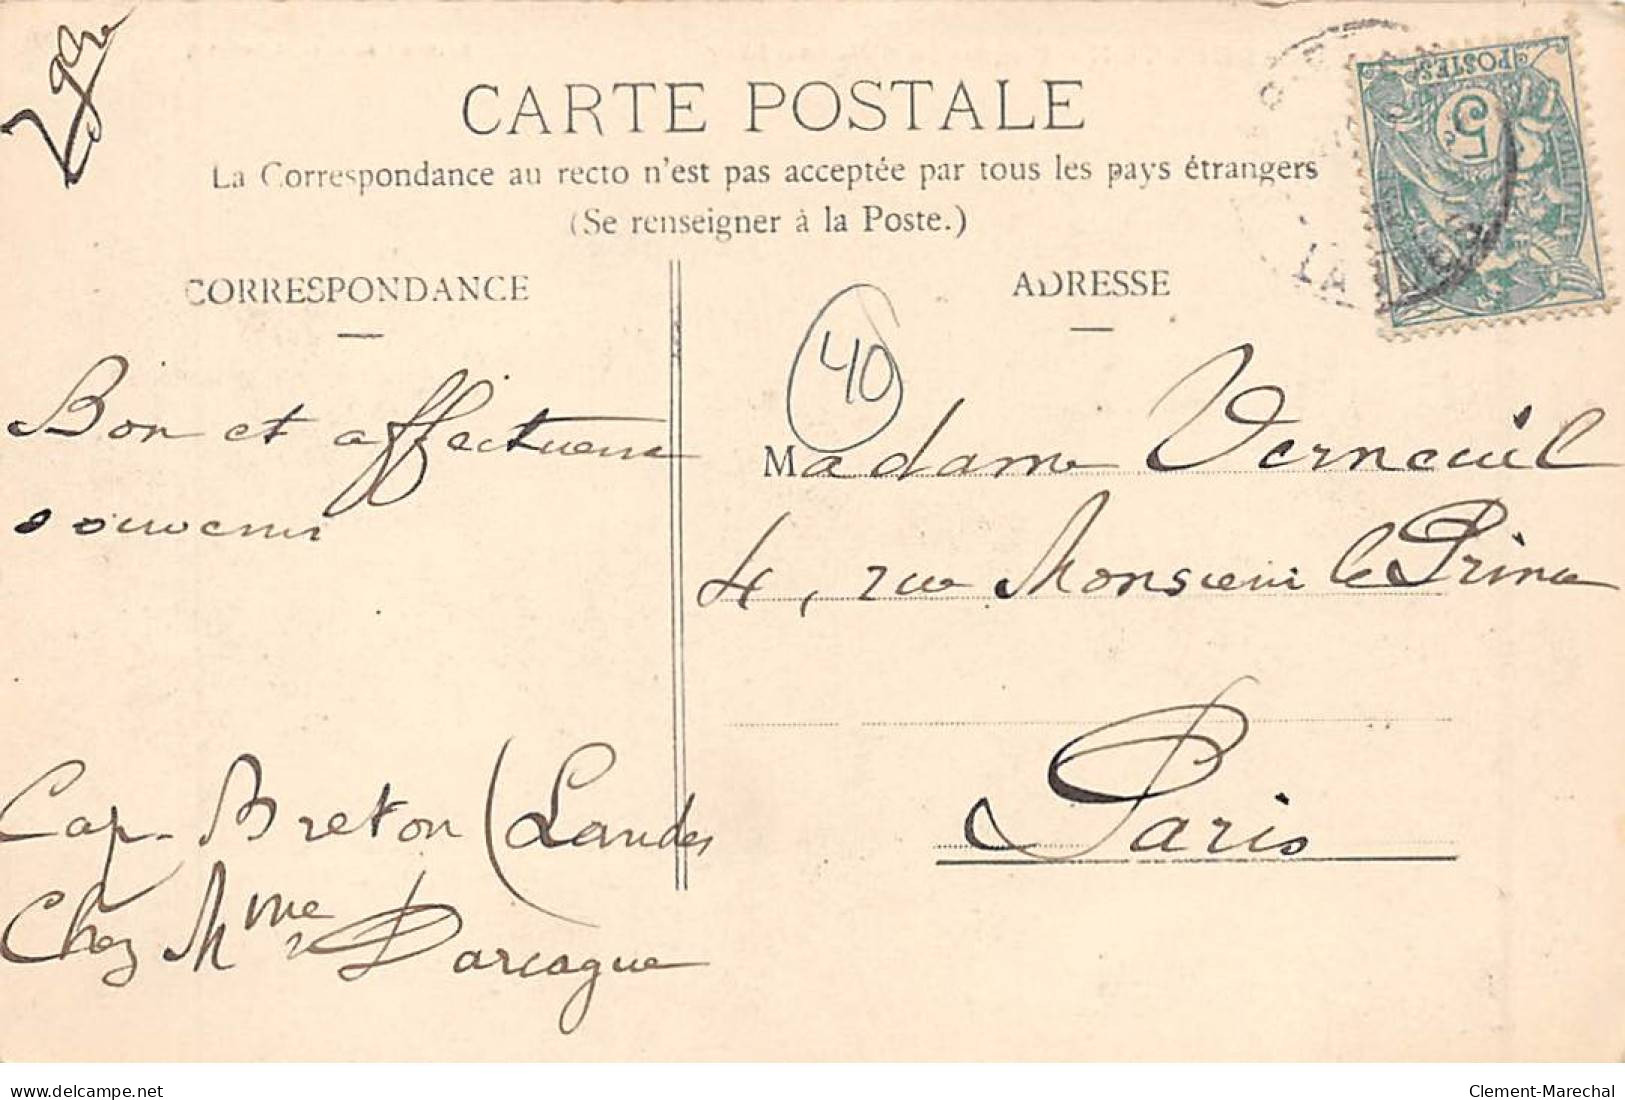 CARTE POSTALE
La Correspondance au recto n'est pas acceptée par tous les pays étrangers
(Se renseigner à la Poste.)
POSTES
5
CORRESPONDANCE
Bon et affectueux
souvenir
Cap-Breton (Landes
Chez Mme Darcague
ADRESSE
40
Madame Verneuil
4, rue Monsieur le Prince
Paris
www.delcampe.net
Clement-Marechal